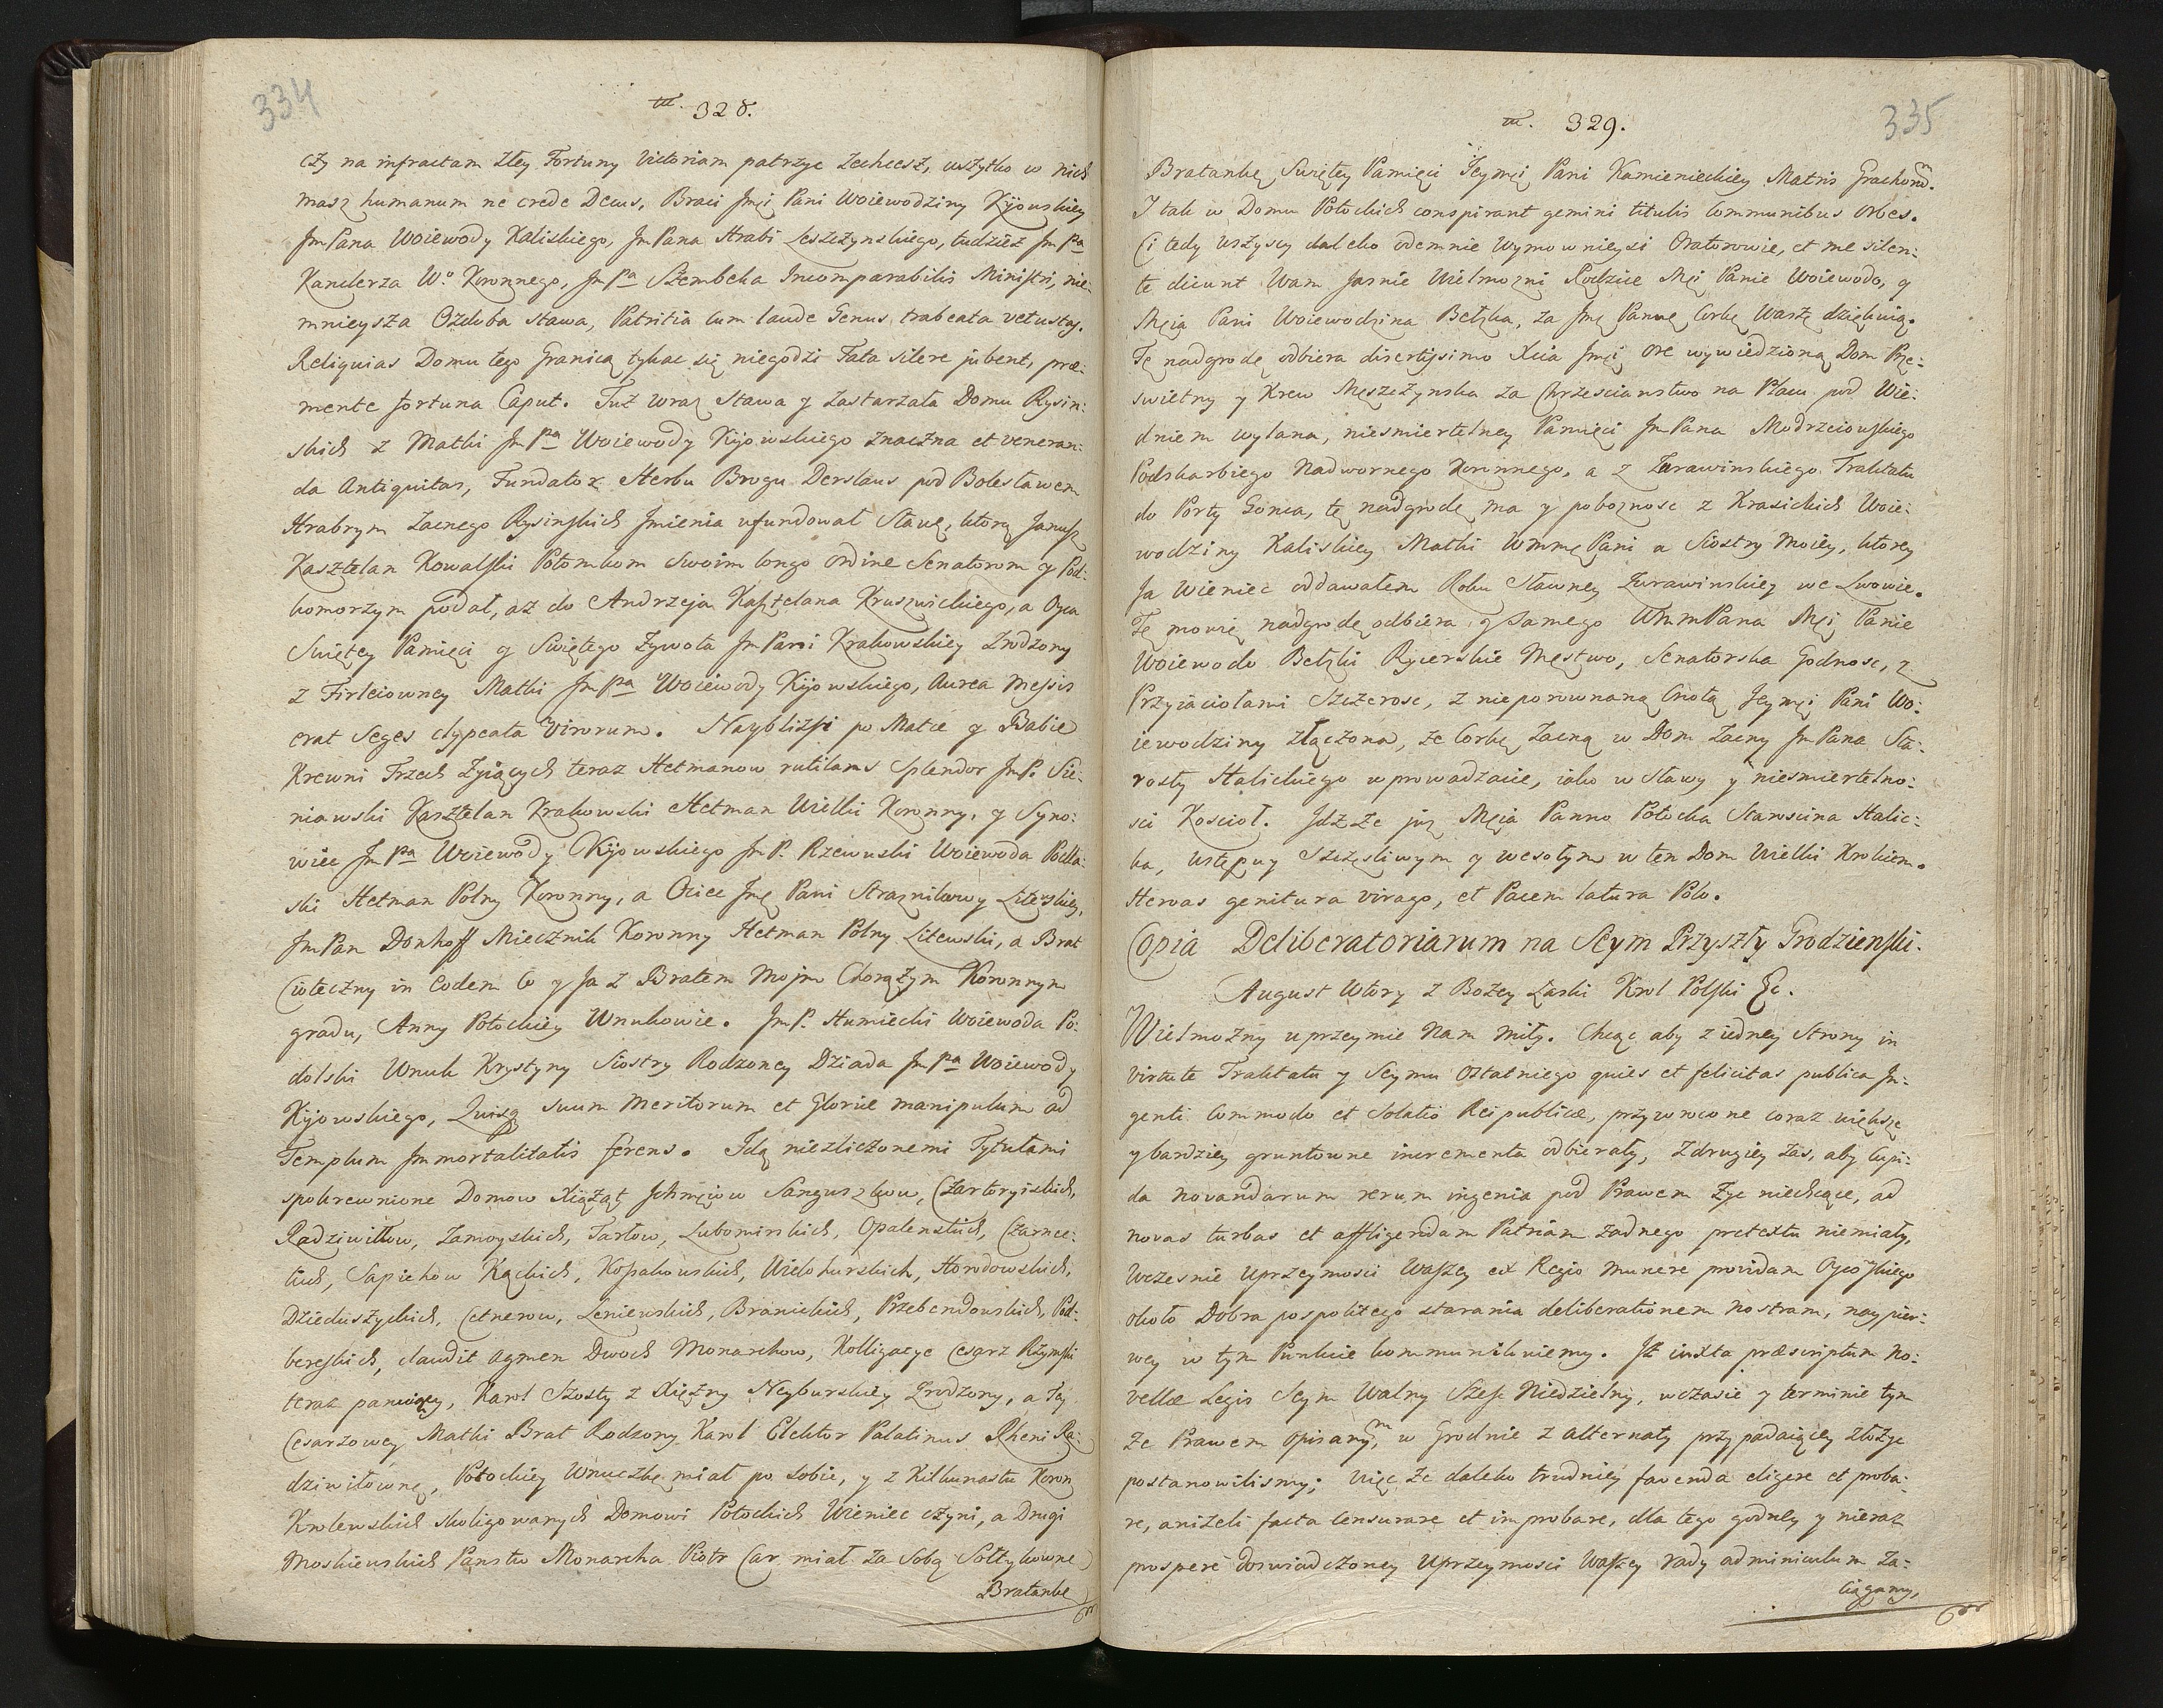 334
m. 328.
czy na infractam złey Fortuny Victoriam patrzyc zechcesz, wszytko w nich
masz humanum ne crede Decus, Braci Jmći Pani Woiewodziny Kijowskiey
JmPana Woiewody Kaliskiego, JmPana Hrabi Leszczynskiego, tudziez JmPa
Kanclerza Wo Koronnego, JmPa Szembeka Incomparabilis Ministri, nie-
mnieysza Ozdoba stawa, Patritia cum laude Genus trabeata vetustas.
Reliquias Domu tego Granicą tykac się niegodzi Fata silere jubent, præ-
mente fortuna Caput. Tuż wraz Sława y zastarzała Domu Rysin-
skich z Matki JmPa Woiewody Kijowskiego znaczna et veneran-
da Antiquitas, Fundator Herbu Brogu Derslaus pod Bolesławem
Hrabrym zacnego Rysinskich Jmienia ufundował Sławę, którą Janusz
Kasztelan Kowalski Potomkom swoim longo ordine Senatorom y Pod-
komorzym podał, aż do Andrzeja Kasztelana Kruszwickiego, a Oyca
Swiętey Pamięci y Swiętego Zywota JmPani Krakowskiey Zrodzony
z Firleiowney Matki JmPa Woiewody Kijowskiego, Aurea Messis
erat Seges clypeata Virorum. Nayblizsi po Matce y Babie
Krewni Trzech żyiących teraz Hetmanow rutilans splendor JmP. Sie-
niawski Kasztelan Krakowski Hetman Wielki Koronny, y Syno-
wiec JmPa Woiewody Kijowskiego JmP. Rzewuski Woiewoda Podla-
ski Hetman Polny Koronny, a Ociec Jmę Pani Straznikowy Litewskiey,
JmPan Donhoff Miecznik Koronny Hetman Polny Litewski, a Brat
Cioteczny in Eodem Co y Ja z Bratem Mojm Chorązym Koronnym
gradu, Anny Potockiey Wnukowie. JmP. Humiecki Woiewoda Po-
dolski Wnuk Krystyny Siostry Rodzoney Dziada JmPa Woiewody
Kijowskiego, Quisq suum Meritorum et Gloriæ manipulum ad
Templum Jmmortalitatis ferens. Idą niezliczonemi Tytułami
spokrewnione Domow Xiążąt Jchmęiow Sanguszkow, Czartoryiskich,
Radziwiłłow, Zamoyskich, Tarłow, Lubomirskich, Opalenskich, Czarnec-
kich, Sapiehow Kąckich, Kossakowskich, Wielohurskich, Horodowskich,
Dzieduszyckich, Cetnerow, Leniewskich, Branickich, Przebendowskich, Pod-
bereskich, claudit agmen Dwoch Monarchow, Kolligacye Cesarz Rzymski
teraz panuiący, Karol Szosty z Xiężny Neyburskiey Zrodzony, a Tey
Cesarzowey Matki Brat Rodzony Karol Elektor Palatinus Rheni Ra-
dziwiłownę, Potockiey Wnuczkę miał po sobie, y z Kilkunastu Koron
Krolewskich skoligowanych Domowi Potockich Wieniec czyni, a Drugi
Moskiewskich Panstw Monarcha Piotr Car miał za sobą Sołtykownę
Bratankę
335
m. 329.
Bratankę Swiętey Pamięci Jeymći Pani Kamienieckiey Matris Grachom.
I tak w Domu Potockich conspirant gemini titulis Communibus Orbes.
Ci tedy wszyscy daleko odemnie Wymownieysi Oratorowie, et me silen-
te dicunt Wam Jasnie Wielmozni Rodzice Mći Panie Woiewodo, y
Mćia Pani Woiewodzina Bełzka, za Jmę Pannę Corkę Waszę dziękuią.
Tę nadgrodę odbiera disertissimo Xcia Jmći ore wywiedzioną Dom Prze-
swietny y Krew Męszczynska za Chrzescianstwo na Placu pod Wie-
dniem wylana, niesmiertelney Pamięci JmPana Modrzeiowskiego
Podskarbiego Nadwornego Koronnego, a z Zurawinskiego Traktatu
do Porty Gonca, tę nadgrodę ma y poboznosc z Krasickich Woie-
wodziny Kaliskiey Matki Wmmę Pani a Siostry Moiey, ktorey
Ja Wieniec oddawałem Roku Sławney Zurawinskiey we Lwowie.
Tę mowię nadgrodę odbiera y samego WmmPana Mći Panie
Woiewodo Bełzki Rycerskie Męstwo, Senatorska Godnosc, z
Przyiaciołami Szczerosc, z nieporownaną Cnotą Jeymći Pani Wo-
iewodziny złączona, że Corkę Zacną w Dom Zacny JmPana Sta-
rosty Halickiego wprowadzacie, iako w Sławy y niesmiertelno-
sci Kościoł. Jdz że już Mćia Panno Potocka Starościna Halic-
ka, wstępuy Szczęsliwym y wesołym w ten Dom Wielki Krokiem.
Heroas genitura virago, et Pacem latura Polo.
Copia Deliberatoriarum na Seym Przyszły Grodzienski.
August Wtory z Bozey Łaski Krol Polski &c.
Wielmozny uprzeymie Nam Miły. Chcąc aby z iedney Strony in
virtute Traktatu y Seymu Ostatniego quies et felicitas publica In-
genti Commodo et Solatio Reipublicæ, przywrocone coraz większe
y bardziey gruntowne incrementa odbierały, z drugiey zas, aby Cupi-
da novandarum rerum ingenia pod Prawem żyć niechcące, ad
novas turbas et affligendam Patriam żadnego pretextu niemiały,
Wczesnie Uprzeymosci Waszey ex Regio Munere providam Oycowskiego
około Dobra pospolitego starania deliberationem Nostram, naypier-
wey w tym Punkcie kommunikuiemy. Jż iuxta præscriptum No-
vellæ Legis Seym Walny Szesc Niedzielny, w czasie y terminie tym
że Prawem opisanym, w Grodnie z alternaty przypadaiącey złożyc
postanowilismy; więc że daleko trudniey favenda eligere et proba-
re, aniżeli facta Censurare et improbare, dla tego godney y nieraz
prospere doswiadczoney Uprzeymosci Waszey rady adminiculum za-
ciągamy,